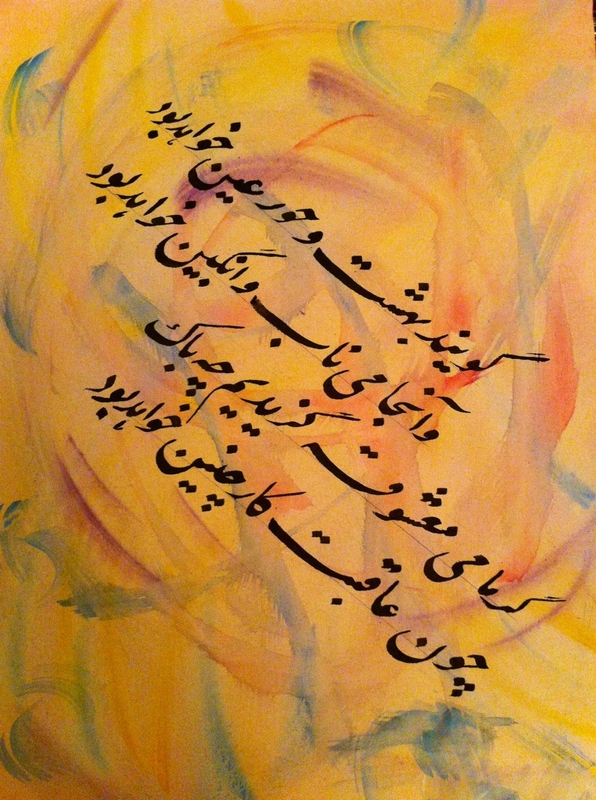 گویند بهشت و حور عین خواهد بود
وآنجا می ناب و انگبین خواهد بود
گر ما می معشوقه گزیدیم چه باک
چون عاقبت کار چنین خواهد بود